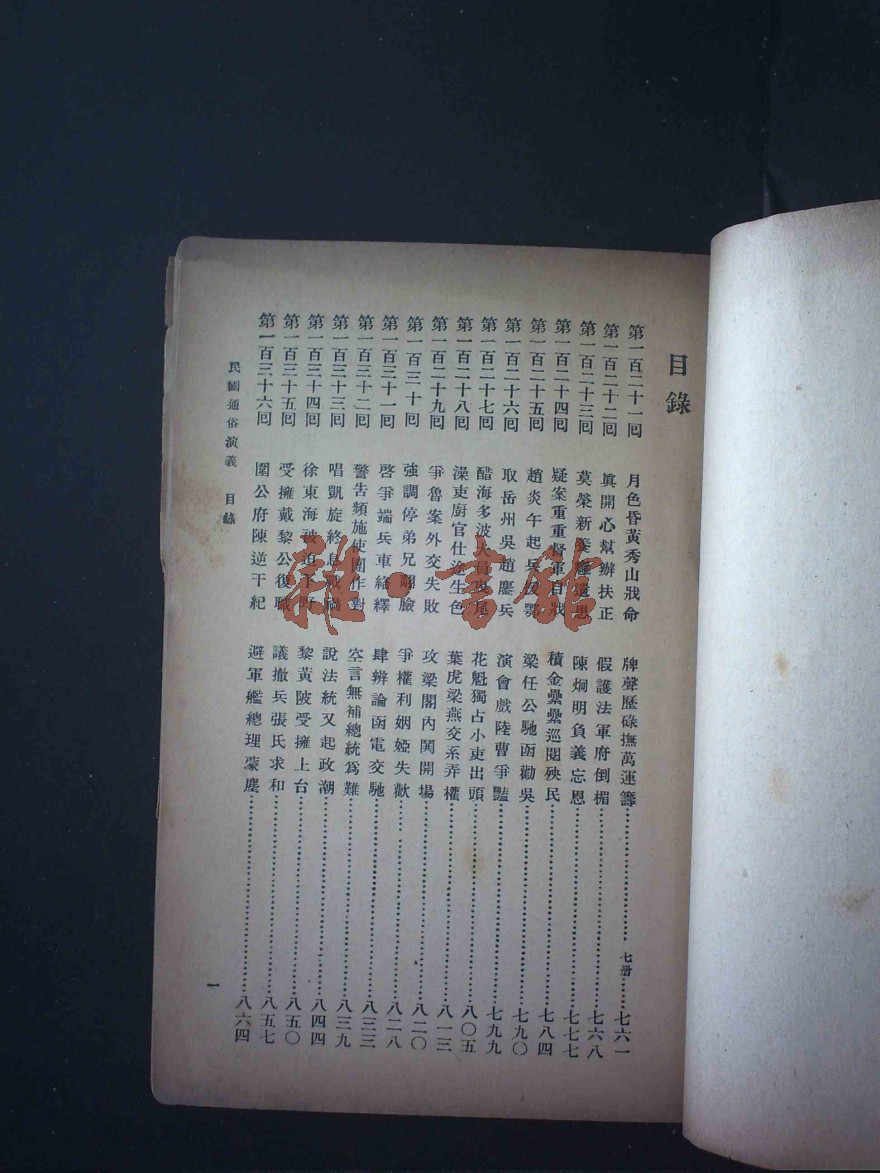 目錄
第一百二十一囘 月色昏黃秀山戕命 牌聲歷碌撫萬運籌……七册……七六一
第一百二十二囘 眞開心幫辦扶正 假護法軍府倒楣……七六八
第一百二十三囘 莫榮新養癰遺患 陳炯明負義忘恩……七七七
第一百二十四囘 疑案重重督軍自戕 積金纍纍巡閱殃民……七八四
第一百二十五囘 趙炎午起兵援鄂 梁任公馳函勸吳……七九〇
第一百二十六囘 取岳州吳趙鏖兵 演會戲陸曹爭豔……七九九
第一百二十七囘 醋海多波大員曳尾 花魁獨占小吏出頭……八〇五
第一百二十八囘 澡吏廚官仕途生色 葉虎梁燕交系弄權……八一三
第一百二十九囘 爭魯案外交失敗 攻梁閣內閧開場……八二〇
第一百三十囘 強調停弟兄翻臉 爭權利姻婭失歡……八二八
第一百三十一囘 啓爭端兵車絡繹 肆辨論函電交馳……八三三
第一百三十二囘 警告頻施使團作對 空言無補總統爲難……八三九
第一百三十三囘 唱凱旋終息戰禍 說法統又起政潮……八四四
第一百三十四囘 徐東海被迫下野 黎黃陂受擁上台……八五〇
第一百三十五囘 受擁戴黎公復職 議撤兵張氏求和……八五七
第一百三十六囘 圍公府陳逆干紀 避軍艦總理蒙塵……八六四
民國通俗演義 目錄
一
雜·書館